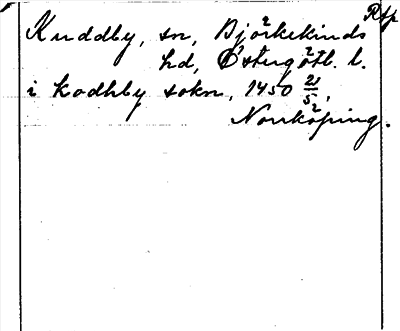 Rtp
Kuddby, sn, Björkekinds
hd, Östergötl. l.
i kodhby sokn, 1450 21/5,
Norrköping.